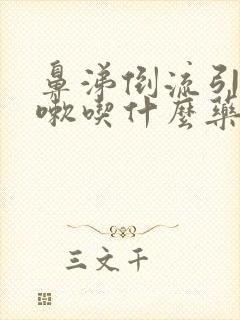 鼻涕倒流引
嗽喫什麼藥
三文干